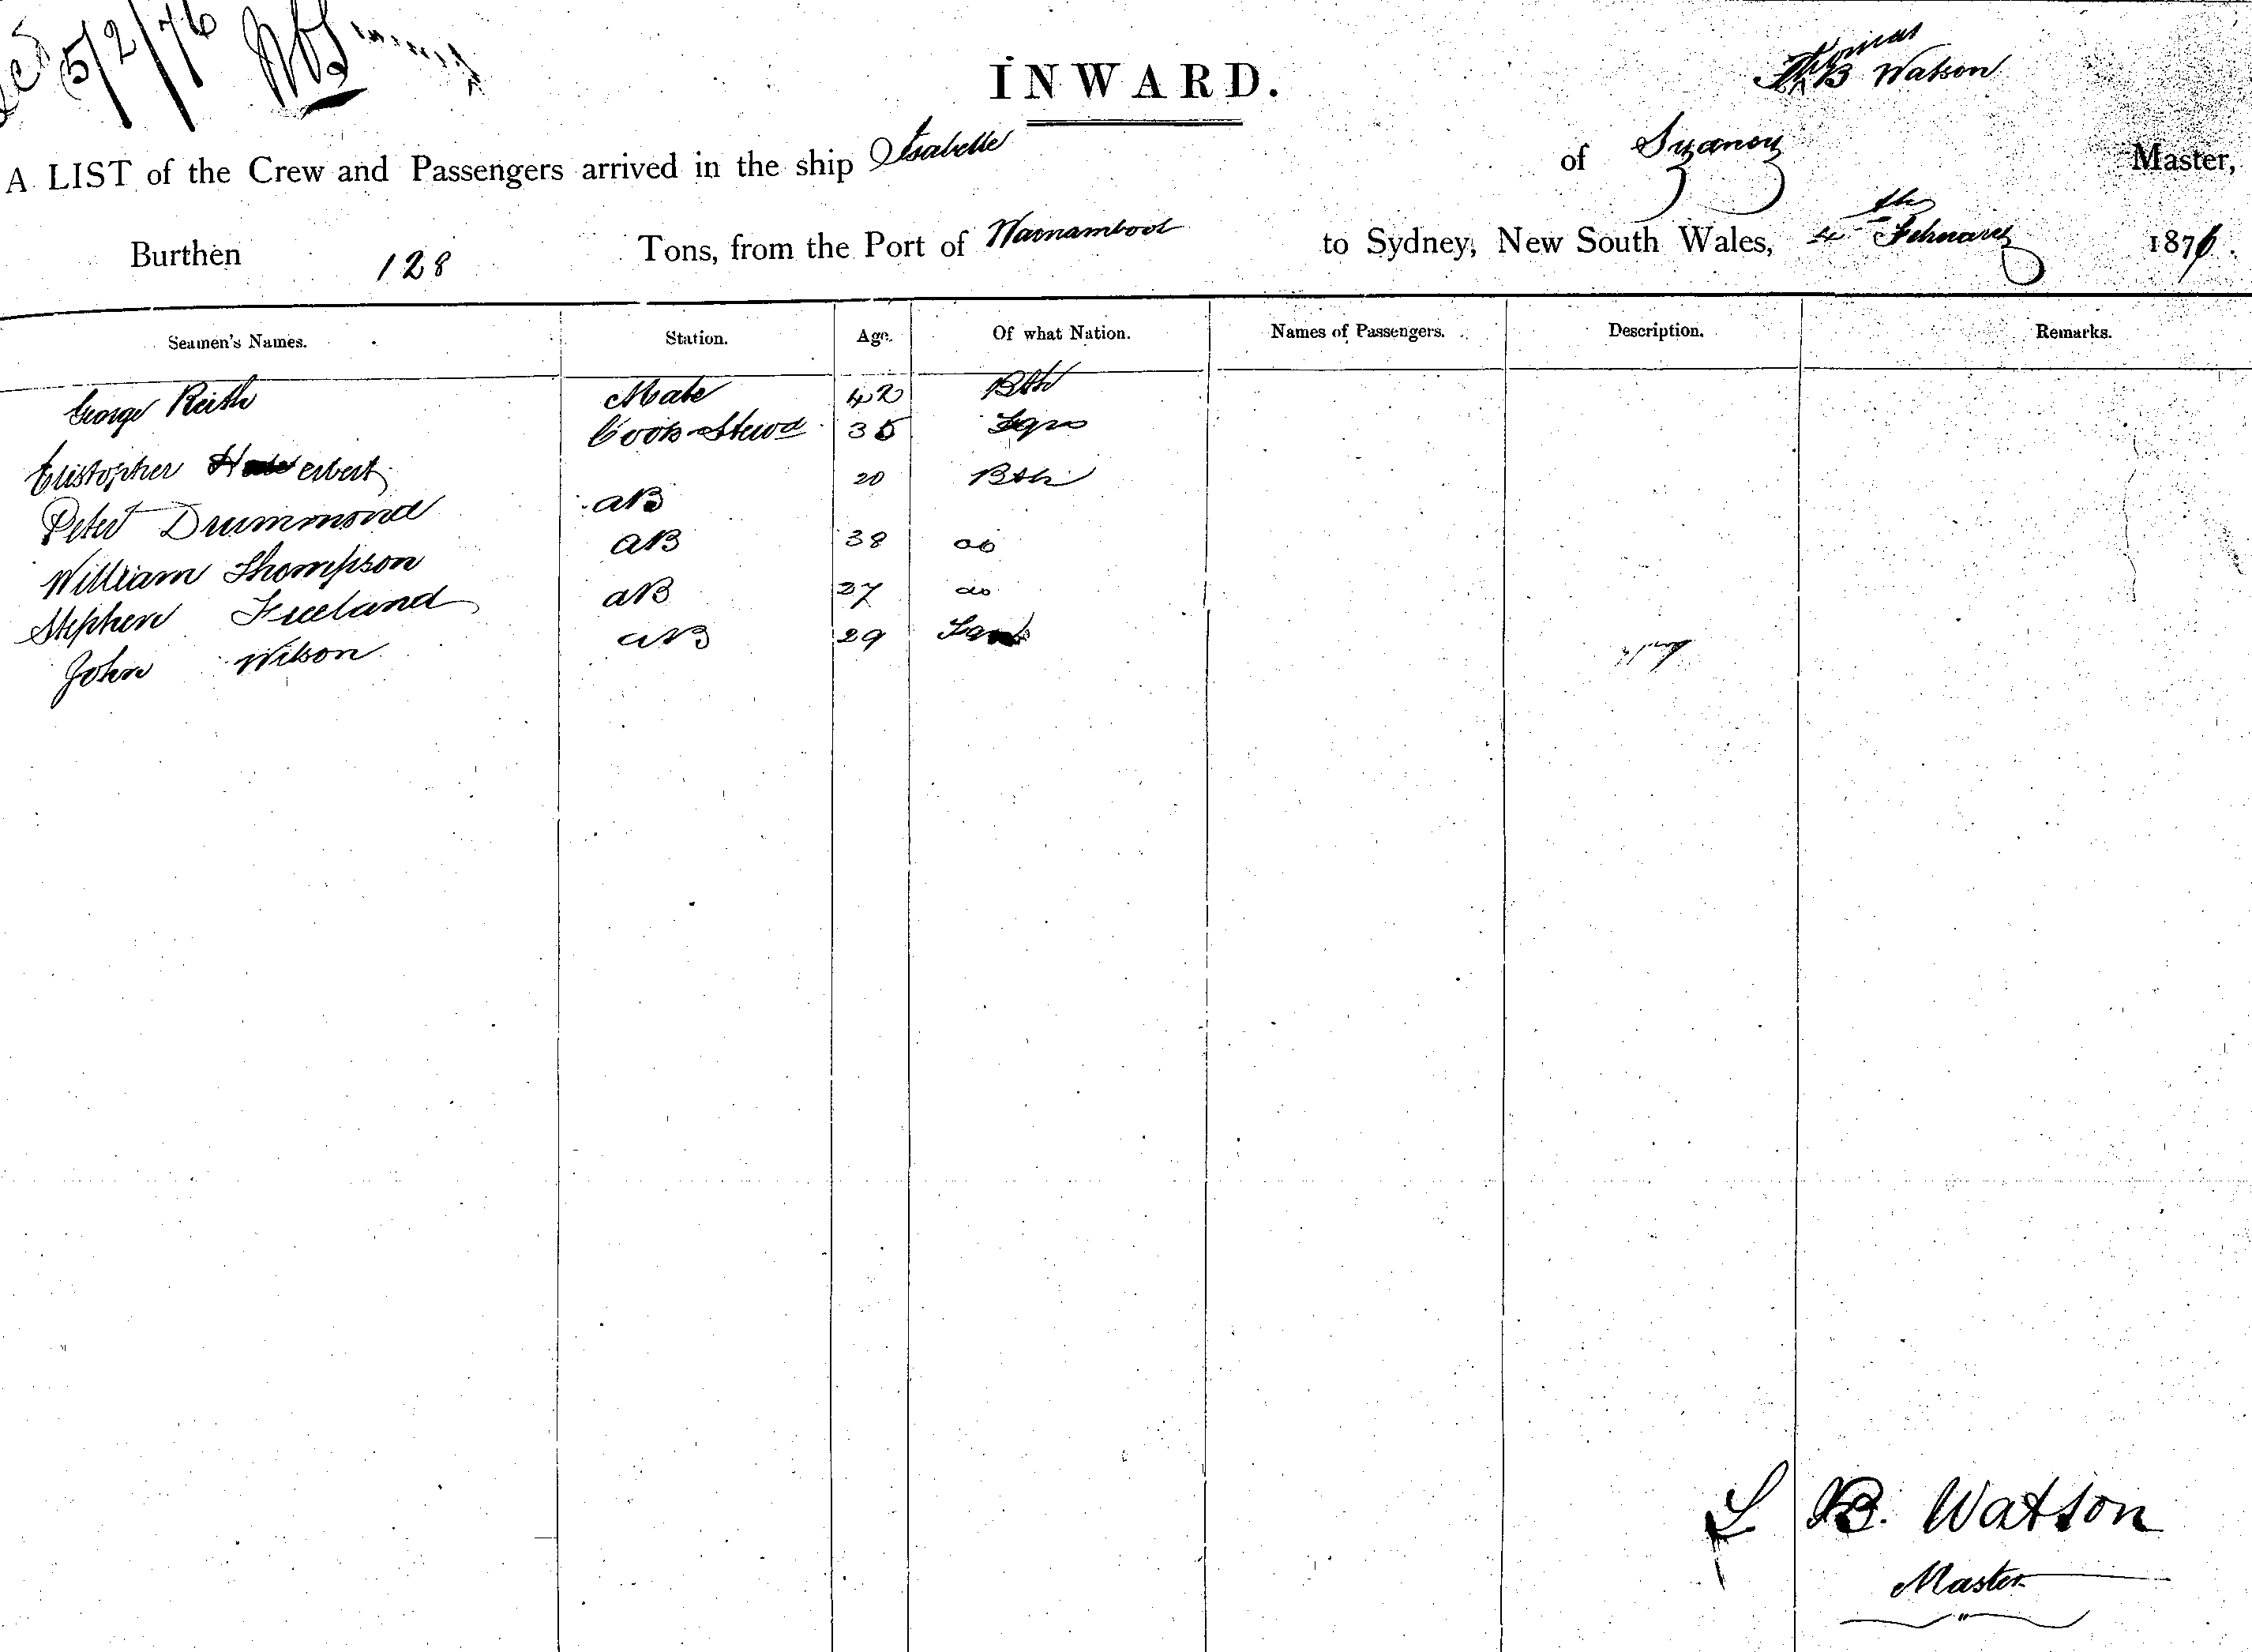 5/2/76
INWARD.
Thomas
B Watson
A LIST of the Crew and Passengers arrived in the ship Isabella of Sydney Master,
Burthen 128 Tons, from the Port of Warnambool to Sydney, New South Wales, 4th February 1876.
Seamen's Names. Station. Age. Of what Nation. Names of Passengers. Description. Remarks.
George Reith Mate 42 Btsh
Cristopher Herbert Cook Stewd 35
Peter Drummond AB 20 Btsh
William Thompson AB 38 do
Stephen Freeland AB 37 do
John Wilson AB 29
B. Watson
Master